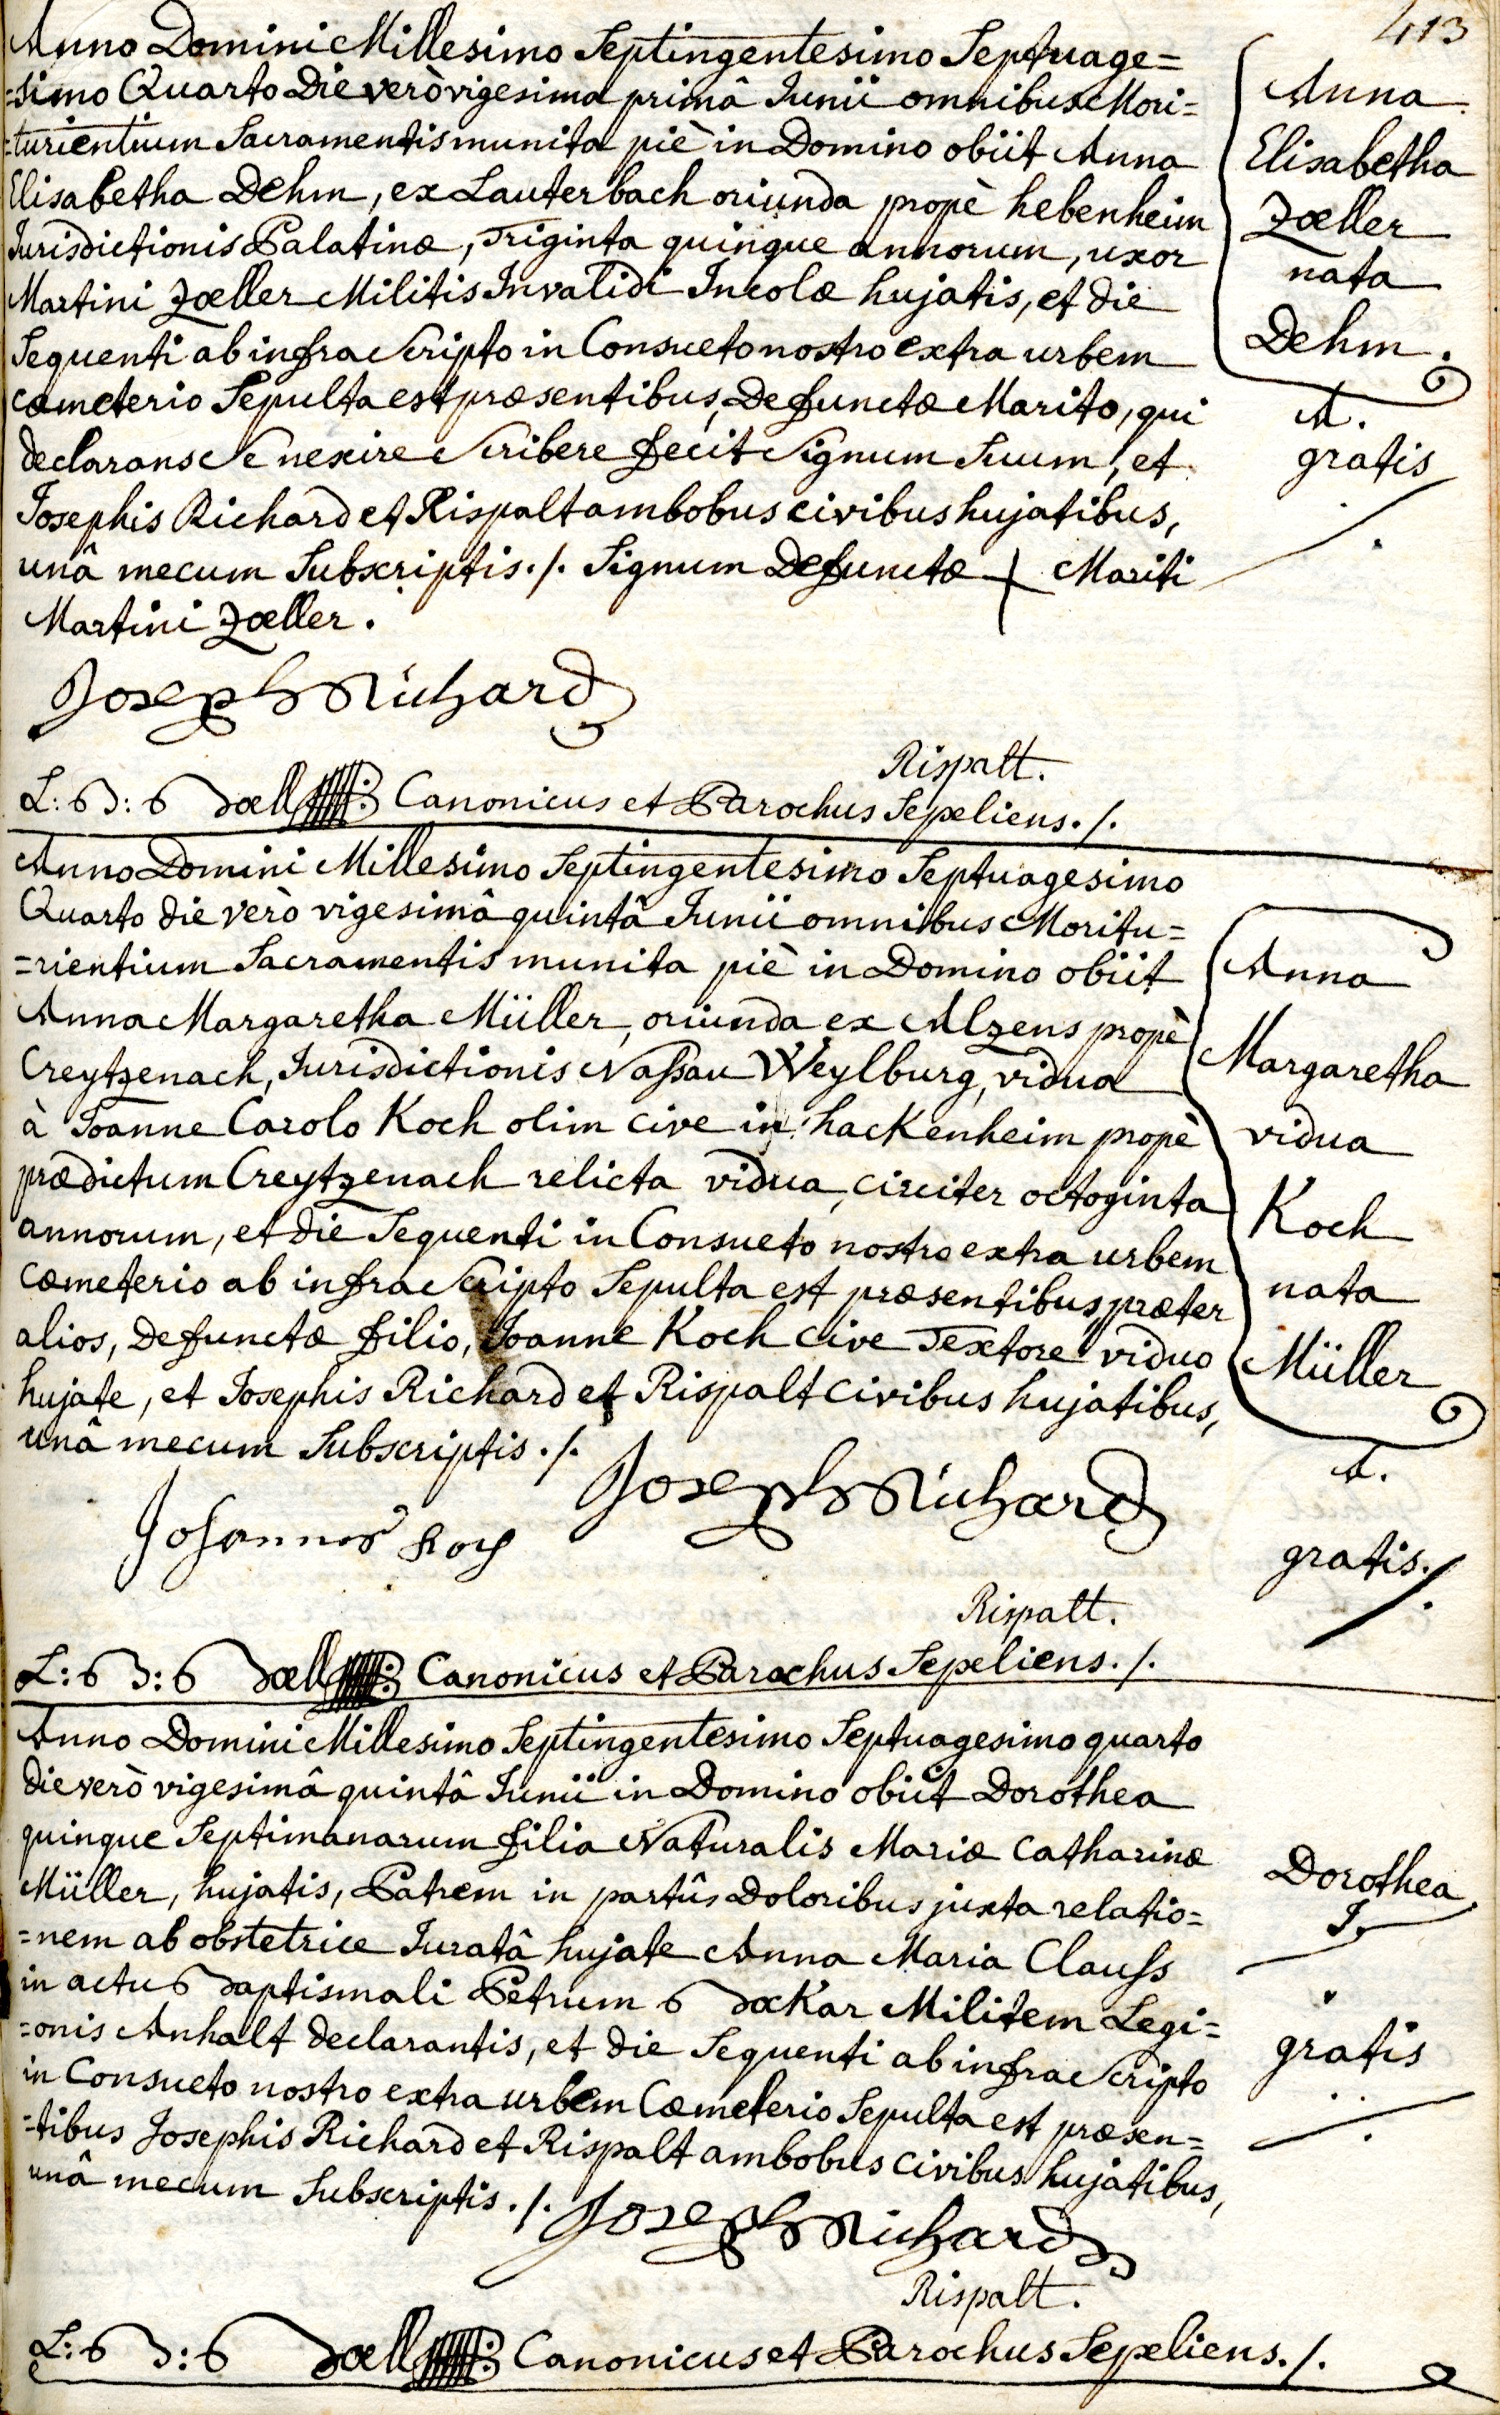 413
Anno Domini Millesimo Septingentesimo Septuage=
=simo Quarto Die verò vigesima primâ Junii omnibus Mori=
=turientium Sacramentis munita piè in Domino obiit Anna
Elisabetha Dehm, ex Lauterbach oriunda propè hebenheim
Jurisdictionis Palatinæ, Triginta quinque annorum, uxor
Martini Zœller Militis Invalidi Incolæ hujatis, et die
Sequenti ab infra Scripto in Consueto nostro extra urbem
cœmeterio Sepulta est præsentibus, Defunctæ Marito, qui
declarans Se nescire Scribere fecit Signum Suum, et
Josephis Richard et Rispalt ambobus civibus hujatibus,
unâ mecum Subscriptis ./. Signum Defunctæ + Mariti
Martini Zœller.
Anna
Elisabetha
Zœller
nata
Dehm.
A.
gratis
Joseph Richard
Rispalt.
L: B: Bœll Canonicus et Parochus Sepeliens ./.
Anno Domini Millesimo Septingentesimo Septuagesimo
Quarto die verò vigesimâ quintâ Junii omnibus Moritu=
=rientium Sacramentis munita piè in Domino obiit
Anna Margaretha Müller, oriunda ex Alzens propè
Creytzenach, Jurisdictionis Nassau Weylburg, vidua
à Joanne Carolo Koch olim cive in hackenheim propè
prædictum Creytzenach relicta vidua, circiter octoginta
annorum, et die Sequenti in Consueto nostro extra urbem
Cœmeterio ab infra Scripto Sepulta est præsentibus, præter
alios, Defunctæ filio, Joanne Koch cive Textore viduo
hujate, et Josephis Richard et Rispalt civibus hujatibus,
unâ mecum Subscriptis ./.
Anna
Margaretha
vidua
Koch
nata
Müller
A.
gratis.
Joseph Richard
Johannes Koch
Rispalt.
L: B: Bœll Canonicus et Parochus Sepeliens ./.
Anno Domini Millesimo Septingentesimo Septuagesimo quarto
die verò vigesimâ quintâ Junii in Domino obiit Dorothea
quinque Septimanarum filia Naturalis Mariæ Catharinæ
Müller, hujatis, Patrem in partûs Doloribus juxta relatio=
=nem ab obstetrice Juratâ hujate Anna Maria Clauss
in actu Baptismali Petrum Bœckar Militem Legi=
=onis Anhalt declarantis, et die Sequenti ab infra Scripto
in Consueto nostro extra urbem Cœmeterio Sepulta est præsen=
=tibus Josephis Richard et Rispalt ambobus civibus hujatibus,
unâ mecum Subscriptis ./.
Dorothea
J.
gratis
Joseph Richard
Rispalt.
L: B: Bœll Canonicus et Parochus Sepeliens ./.